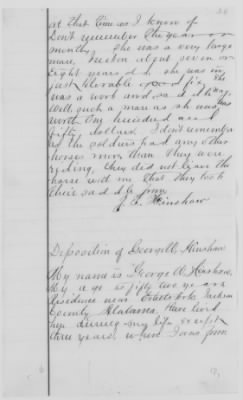 at that time as I know of
Don't remember the year or
month. She was a very large
mare, been about seven or
Eight years old she was in
just tolerable good fix. She
was a work and saddle
well such a man as she was
worth One hundred and
fifty dollars. I don't remember
as the soldiers had any other
horses more than they were
riding, they did not leave the
horse with me that they took
their saddle from
J. L. Hinshaw
Deposition of George W. Hinshaw
My name is George W. Hinshaw,
My age is fifty two years
residence near Jackson
County Alabama. Have lived
here during my life except
three years, when I was from